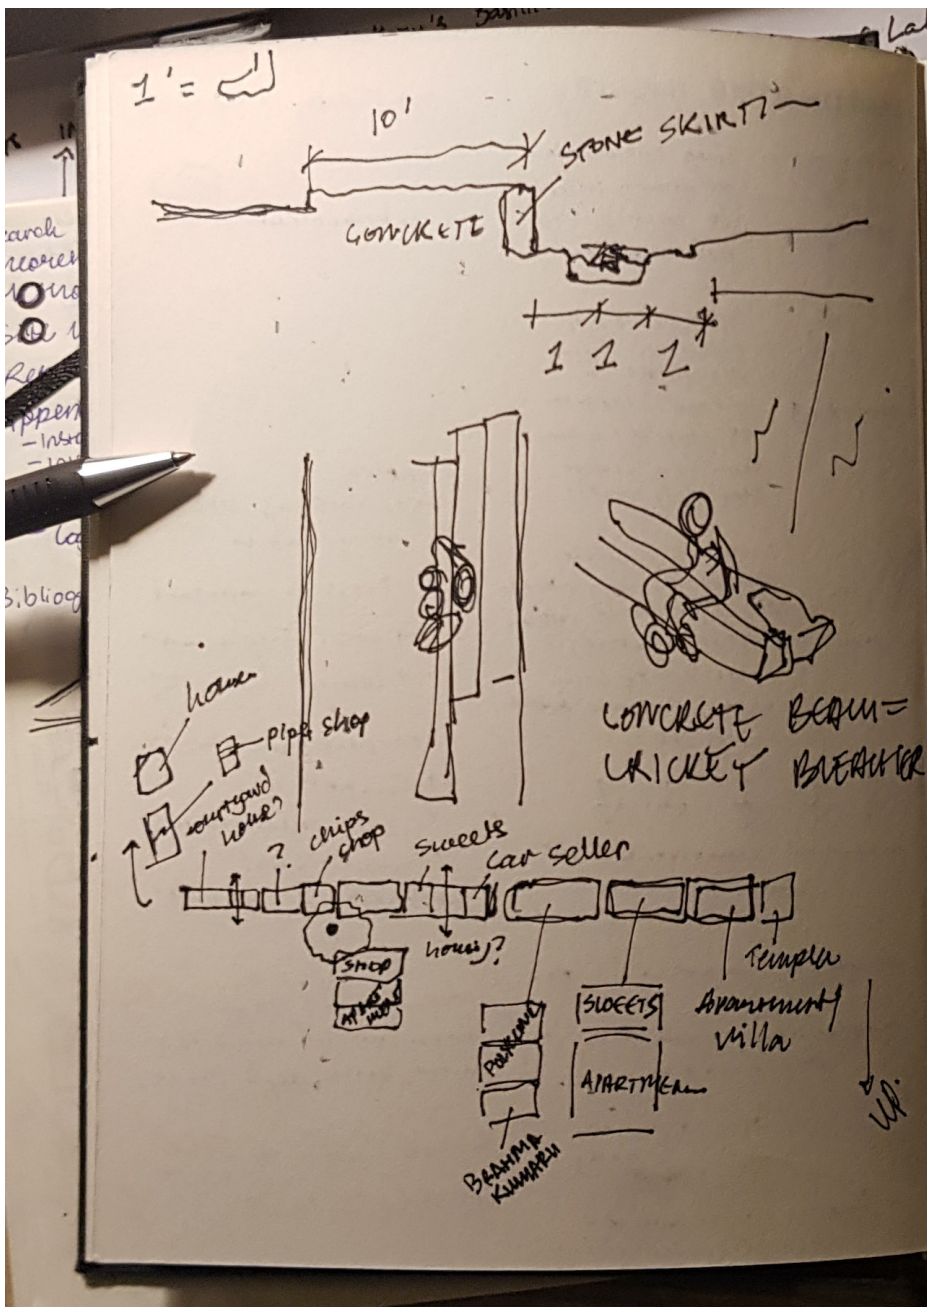 1' =
10'
STONE SKIRT
CONCRETE
1 1 2
CONCRETE BEAM =
CRICKET BLEACHER
house
pipe shop
courtyard
house?
?
chips
shop
sweets
car seller
house?
SHOP
Temple
SWEETS
Apartment/
villa
APARTMEN
BRAHMA
KUMARI
UP.